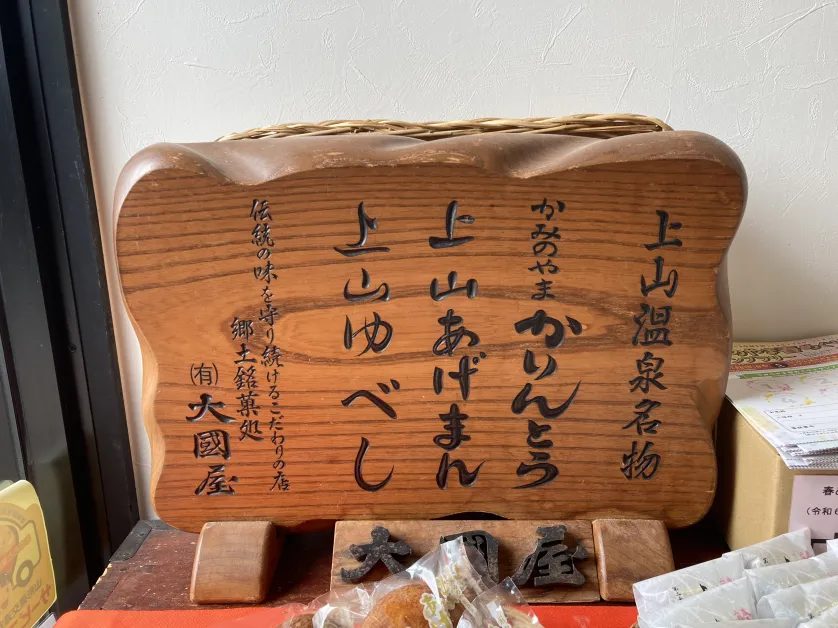 上山温泉名物
かみのやま
かりんとう
上山あげまん
上山ゆべし
伝統の味を守り続けるこだわりの店
郷土銘菓処
㈲大國屋
大國屋